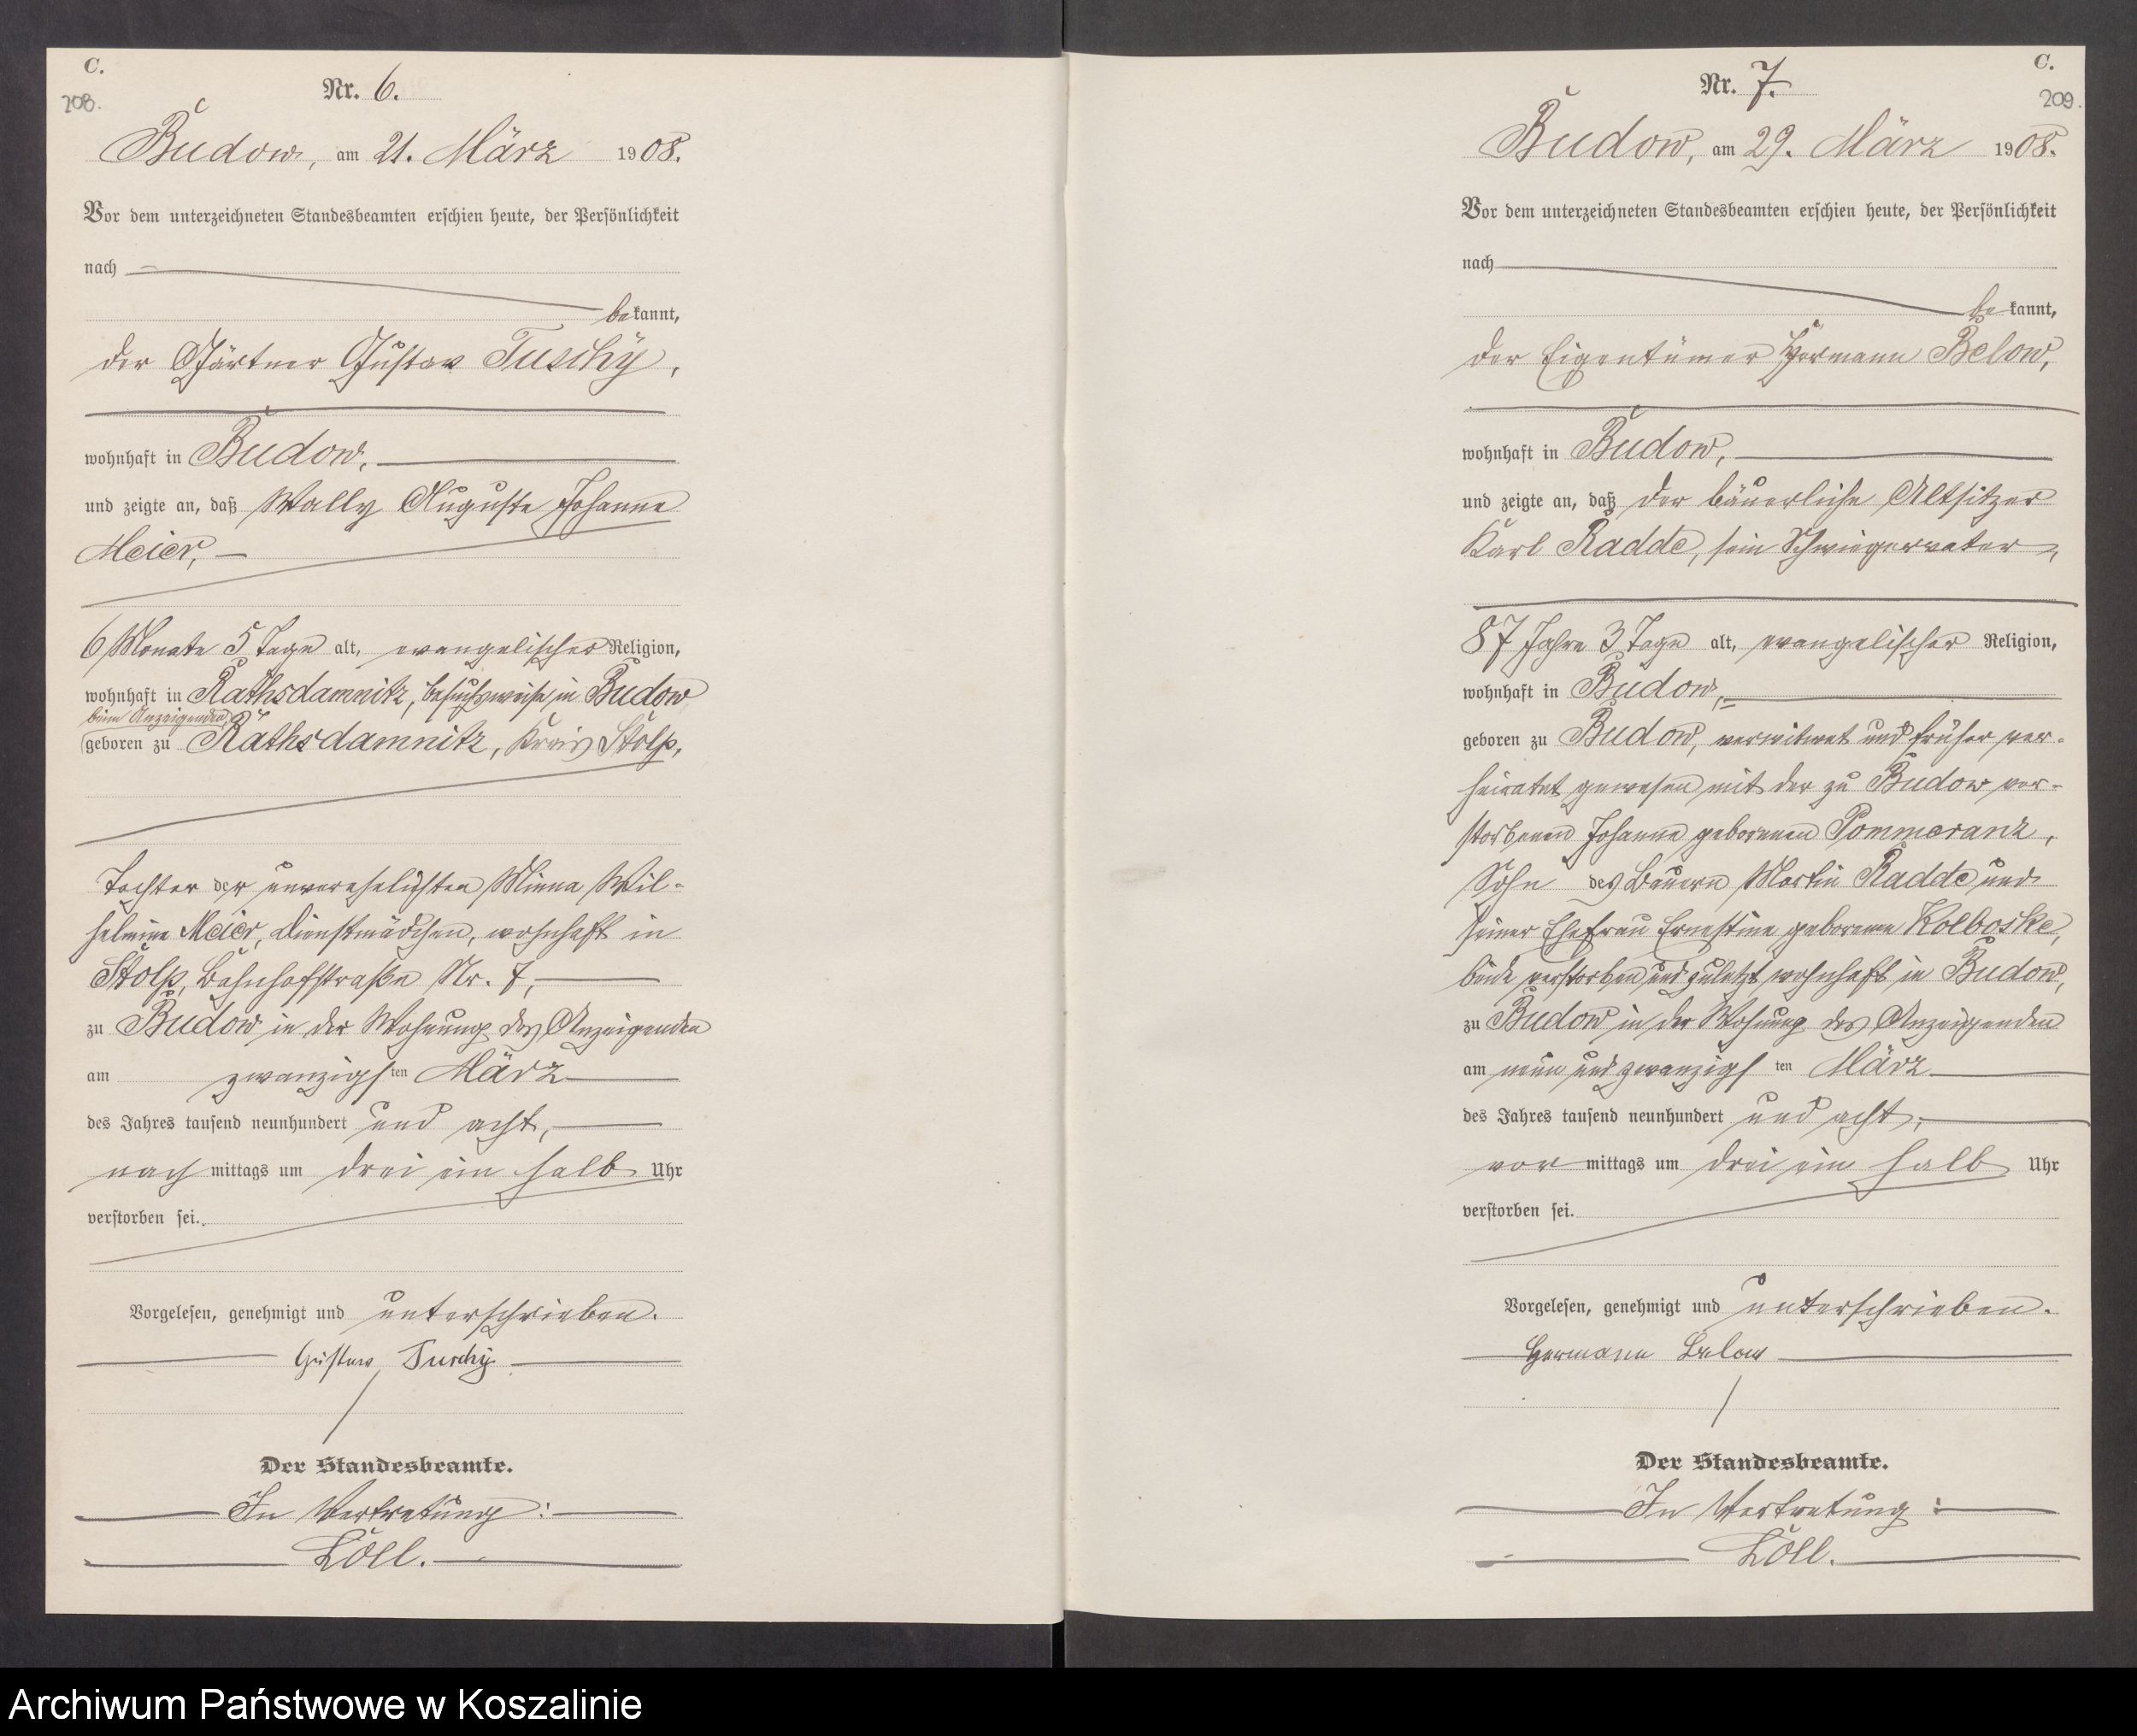 C.
208.
Nr. 6.
Budow, am 21. März 1908.
Vor dem unterzeichneten Standesbeamten erschien heute, der Persönlichkeit
nach
bekannt,
der Gärtner Gustav Tuschy,
wohnhaft in Budow,
und zeigte an, daß Wally Auguste Johanne
Meier,
6 Monate 5 Tage alt, evangelischer Religion,
wohnhaft in Rathsdamnitz, besuchsweise in Budow
beim Anzeigenden,
geboren zu Rathsdamnitz, Kreis Stolp,
Tochter der unverehelichten Minna Wil-
helmine Meier, Dienstmädchen, wohnhaft in
Stolp, Bahnhofstraße Nr. 7,
zu Budow in der Wohnung des Anzeigenden
am zwanzigsten März
des Jahres tausend neunhundert und acht,
nachmittags um drei ein halb Uhr
verstorben sei.
Vorgelesen, genehmigt und unterschrieben.
Gustav Tuschy
Der Standesbeamte.
In Vertretung:
Löll.
C.
209.
Nr. 7.
Budow, am 29. März 1908.
Vor dem unterzeichneten Standesbeamten erschien heute, der Persönlichkeit
nach
bekannt,
der Eigentümer Hermann Below,
wohnhaft in Budow,
und zeigte an, daß der bäuerliche Altsitzer
Karl Radde, sein Schwiegervater,
87 Jahre 3 Tage alt, evangelischer Religion,
wohnhaft in Budow,
geboren zu Budow, verwitwet und früher ver-
heiratet gewesen mit der zu Budow ver-
storbenen Johanne geborenen Pommeranz,
Sohn des Bauern Martin Radde und
seiner Ehefrau Ernestine geborenen Kolboske,
beide verstorben und zuletzt wohnhaft in Budow,
zu Budow in der Wohnung des Anzeigenden
am neun und zwanzigsten März
des Jahres tausend neunhundert und acht,
vormittags um drei ein halb Uhr
verstorben sei.
Vorgelesen, genehmigt und unterschrieben.
Hermann Below
Der Standesbeamte.
In Vertretung:
Löll.
Archiwum Państwowe w Koszalinie